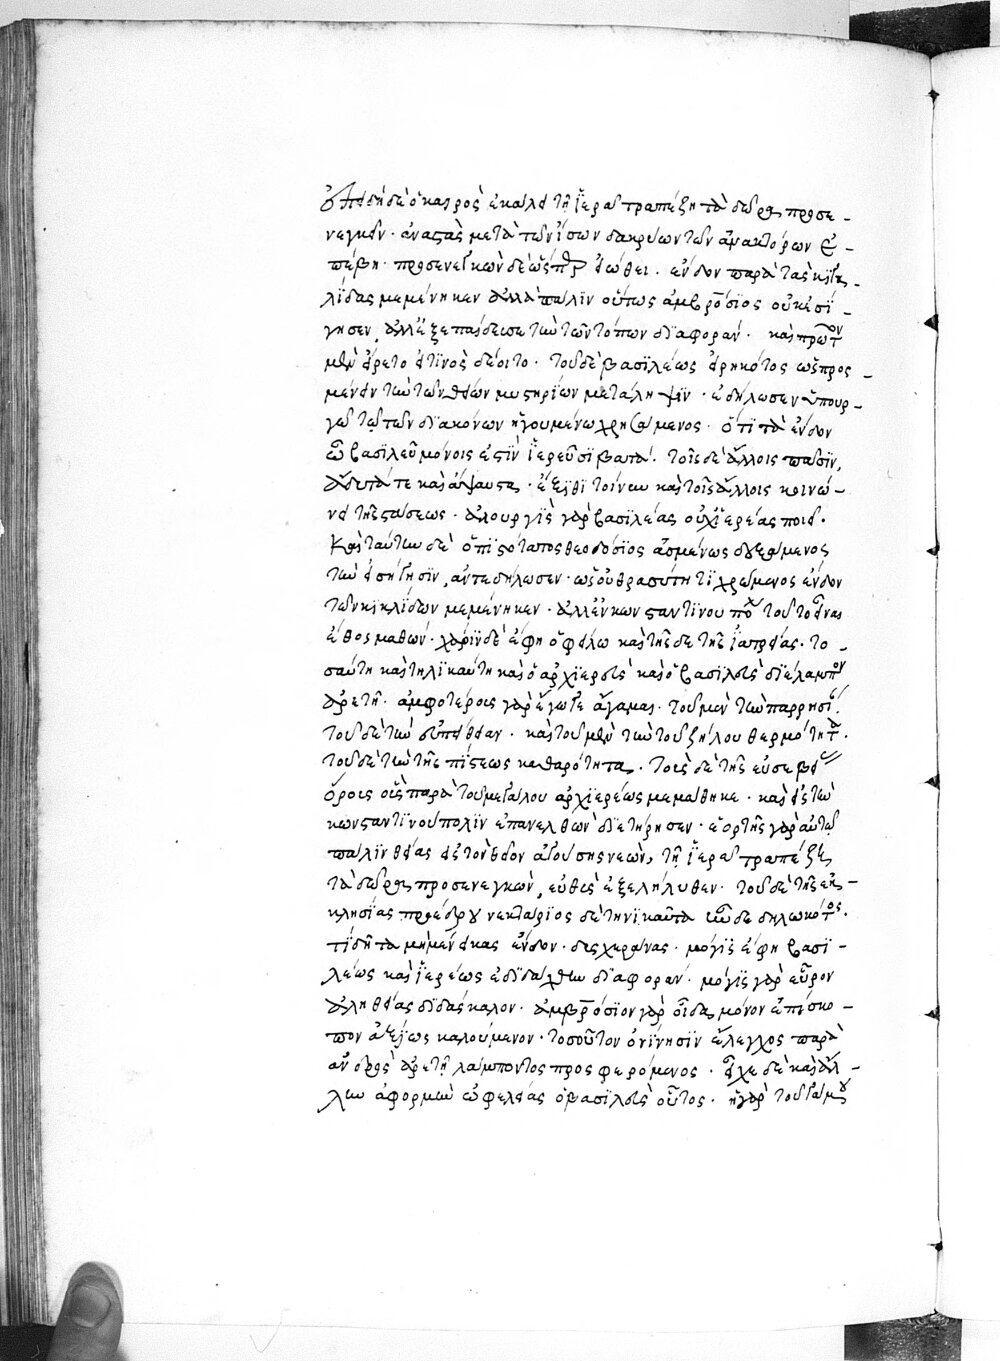 ἐπειδὴ δὲ ὁ καιρὸς ἐκάλει τῇ ἱερᾷ τραπέζῃ τὰ δῶρα προσε-
νεγκεῖν· ἀναστὰς μετὰ τῶν ἴσων δακρύων τῶν ἀνακτόρων ἐ-
πέβη· προσενεγκὼν δὲ ὥσπερ εἰώθει· ἔνδον παρὰ τὰς κιγκ-
λίδας μεμένηκεν ἀλλὰ πάλιν οὔπως ἀμβρόσιος οὐκ ἐσί-
γησεν, ἀλλ' ἐξεπαίδευσε τὴν τῶν τόπων διαφοράν· καὶ πρῶτον
μὲν ἤρετο εἴ τινος δέοιτο· τοῦ δὲ βασιλέως εἰρηκότος ὡς προσ-
μένειν τὴν τῶν θείων μυστηρίων μετάληψιν· ἐδήλωσεν ὑπουρ-
γῷ τῷ τῶν διακόνων ἡγουμένῳ χρησάμενος· ὅτι τὰ ἔνδον
ὦ βασιλεῦ μόνοις ἐστὶν ἱερεῦσι βατά· τοῖς δὲ ἄλλοις πᾶσιν,
ἄδυτά τε καὶ ἄψαυστα· ἔξιθι τοίνυν καὶ τοῖς ἄλλοις κοινώ-
νει τῆς στάσεως· ἁλουργὶς γὰρ βασιλέας οὐχ ἱερέας ποιεῖ·
Καὶ ταύτην δὲ ὁ πιστότατος θεοδόσιος ἀσμένως δεξάμενος
τὴν εἰσήγησιν, ἀντεδήλωσεν· ὡς οὐ θρασύτητι χρώμενος ἔνδον
τῶν κιγκλίδων μεμένηκεν· ἀλλ' ἐν κωνσταντίνου πόλει τοῦτο εἶναι
ἔθος μαθών· χάριν δὲ ἔφη ὀφείλω καὶ τῆς δε τῆς ἰατρείας· το-
σαύτῃ καὶ τηλικαύτῃ καὶ ὁ ἀρχιερεὺς καὶ ὁ βασιλεὺς διέλαμπον
ἀρετῇ· ἀμφοτέροις γὰρ ἔγωγε ἄγαμαι· τοῦ μὲν τὴν παρρησίαν·
τοῦ δὲ τὴν εὐπείθειαν· καὶ τοῦ μὲν τὴν τοῦ ζήλου θερμότητα·
τοῦ δὲ τὴν τῆς πίστεως καθαρότητα. Τοὺς δὲ τῆς εὐσεβείας
ὅρους οὓς παρὰ τοῦ μεγάλου ἀρχιερέως μεμάθηκε· καὶ εἰς τὴν
κωνσταντινούπολιν ἐπανελθὼν διετήρησεν· ἑορτῆς γὰρ αὐτὸν
πάλιν θείας εἰς τὸν θεῖον ἀγούσης νεών, τῇ ἱερᾷ τραπέζῃ
τὰ δῶρα προσενεγκών, εὐθὺς ἐξελήλυθεν· τοῦ δὲ τῆς ἐκ-
κλησίας προέδρου νεκτάριος δὲ τηνικαῦτα ἦν δεδηλωκότος·
τί δή τα μὴ μένεικας ἔνδον· δυσχεράνας· μόγις ἔφη βασι-
λέως καὶ ἱερέως ἐδιδάχθην διαφοράν· μόγις γὰρ εὗρον
ἀληθείας διδάσκαλον· ἀμβρόσιον γὰρ οἶδα μόνον ἐπίσκο-
πον ἀξίως καλούμενον· τοσοῦτον ὀνίνησιν ἔλεγχος παρὰ
ἀνδρὸς ἀρετῇ λάμποντος προσφερόμενος· εἶχε δὲ καὶ ἄλ-
λην ἀφορμὴν ὠφελείας ὁ βασιλεὺς οὗτος· ἡ γὰρ τοῦ γάμου